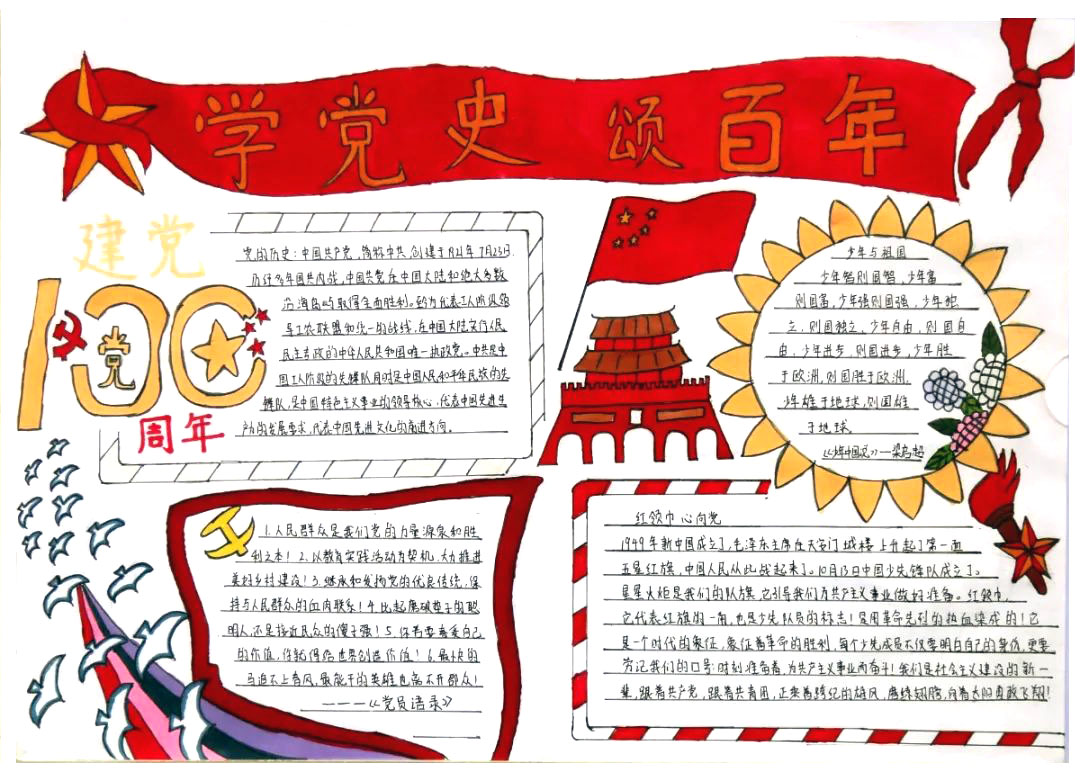 学党史 颂百年
建党
100
党
周年
党的历史：中国共产党，简称中共，创建于1921年7月23日.
历经多年国共内战，中国共党在中国大陆和绝大多数
沿海岛屿取得全面胜利。
工农联盟和统一的战线，在中国大陆实行人民
民主专政的中华人民共和国唯一执政党。中共是中
国工人阶级的先锋队同时是中国人民和中华民族的先
锋队，是中国特色社会主义事业的领导核心，代表中国先进生
产力的发展要求，代表中国先进文化的前进方向。
少年与祖国
少年智则国智，少年富
则国富，少年强则国强，少年独
立，则国独立，少年自由，则国自
由，少年进步，则国进步，少年胜
于欧洲，则国胜于欧洲，
少年雄于地球，则国雄
于地球
《少年中国说》——梁启超
1.人民群众是我们党的力量源泉和胜
利之本！2.以教育实践活动为契机，大力推进
美好乡村建设！3.继承和发扬党的优良传统，保
持与人民群众的血肉联系！4.比起磨破鞋子的聪
明人，不是接近民众的傻子强！5.你若要看重自己
的价值，你就得给世界创造价值！6.最快的
马追不上春风，最能干的英雄也离不开群众！
————《党员语录》
红领巾心向党
1949年新中国成立了，毛泽东主席在天安门城楼上升起了第一面
五星红旗，中国人民从此战起来了。10月13日中国少先锋队成立了。
星星火炬是我们的队旗，它引导我们为共产主义事业做好准备。红领巾，
它代表红旗的一角，也是少先队员的标志！是用革命先烈的热血染成的！它
是一个时代的象征，象征着革命的胜利，每个少先成员不仅要明白自己的身份，更要
牢记我们的口号：时刻准备着，为共产主义事业而奋斗！我们是社会主义建设的新一
辈，跟着共产党，跟着共青团，正乘着跨纪的雄风，磨练翅膀，向着太阳勇敢飞翔！